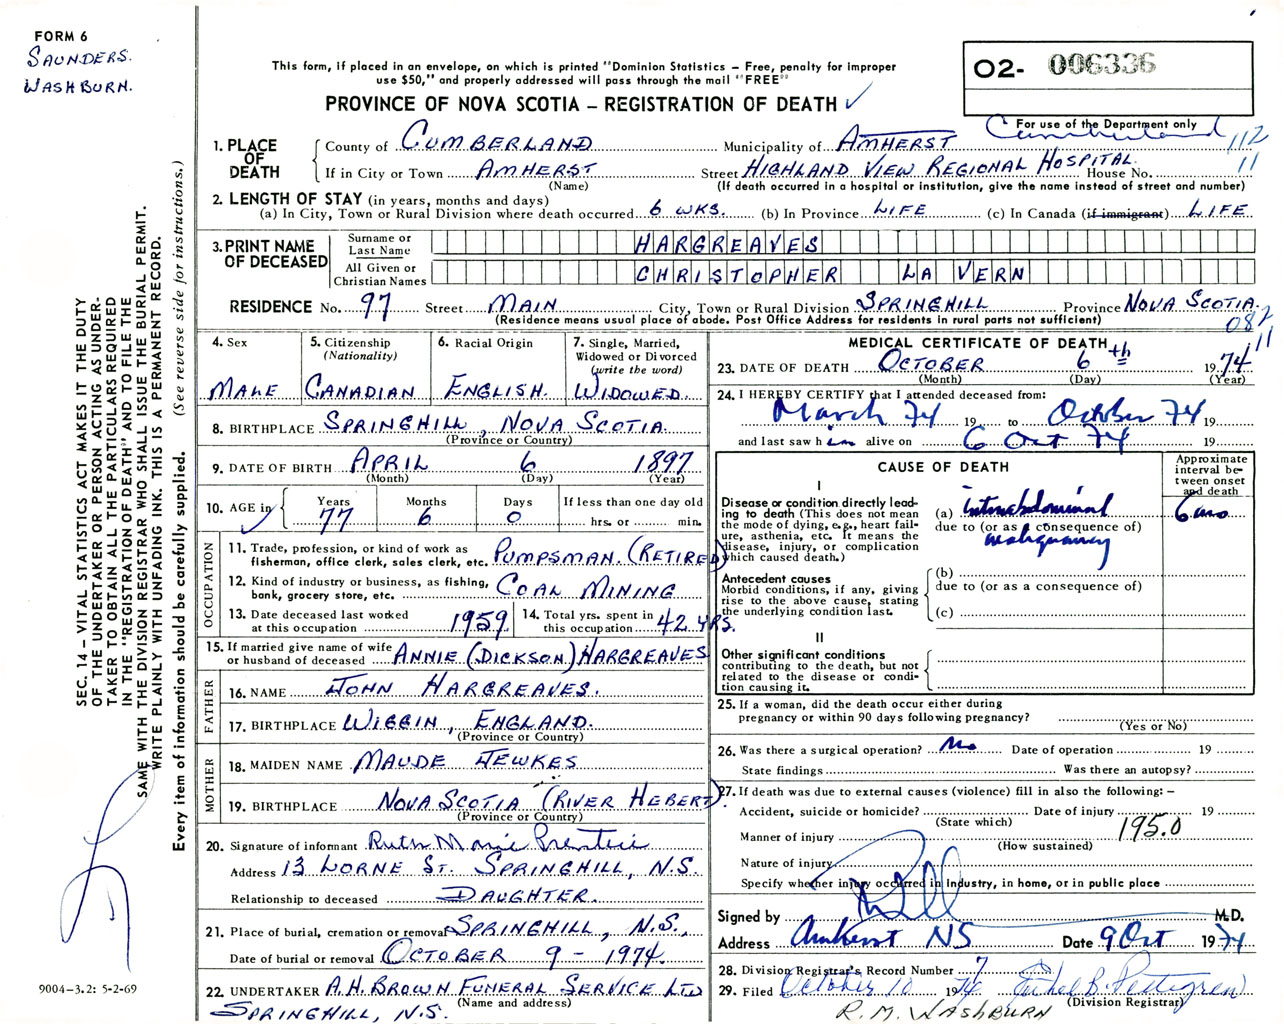 FORM 6
SAUNDERS.
WASHBURN.
This form, if placed in an envelope, on which is printed "Dominion Statistics – Free, penalty for improper
use $50," and properly addressed will pass through the mail "FREE"
PROVINCE OF NOVA SCOTIA – REGISTRATION OF DEATH ✓
O2- 006336
For use of the Department only
Cumberland 112
11
1. PLACE OF DEATH
County of CUMBERLAND Municipality of AMHERST
If in City or Town AMHERST Street HIGHLAND VIEW REGIONAL HOSPITAL. House No.
(Name) (If death occurred in a hospital or institution, give the name instead of street and number)
2. LENGTH OF STAY (in years, months and days)
(a) In City, Town or Rural Division where death occurred 6 WKS. (b) In Province LIFE (c) In Canada (if immigrant) LIFE
3. PRINT NAME OF DECEASED
Surname or Last Name HARGREAVES
All Given or Christian Names CHRISTOPHER LA VERN
RESIDENCE No. 97 Street MAIN City, Town or Rural Division SPRINGHILL Province NOVA SCOTIA.
(Residence means usual place of abode. Post Office Address for residents in rural parts not sufficient)
082
11
4. Sex
MALE
5. Citizenship
(Nationality)
CANADIAN
6. Racial Origin
ENGLISH.
7. Single, Married,
Widowed or Divorced
(write the word)
WIDOWED.
8. BIRTHPLACE SPRINGHILL, NOVA SCOTIA.
(Province or Country)
9. DATE OF BIRTH APRIL 6 1897
(Month) (Day) (Year)
10. AGE in Years 77 Months 6 Days 0 If less than one day old
hrs. or min.
OCCUPATION
11. Trade, profession, or kind of work as
fisherman, office clerk, sales clerk, etc. PUMPSMAN. (RETIRED)
12. Kind of industry or business, as fishing,
bank, grocery store, etc. COAL MINING
13. Date deceased last worked
at this occupation 1959
14. Total yrs. spent in
this occupation 42 YRS.
15. If married give name of wife
or husband of deceased ANNIE (DICKSON) HARGREAVES
FATHER
16. NAME JOHN HARGREAVES.
17. BIRTHPLACE WIGGIN, ENGLAND.
(Province or Country)
MOTHER
18. MAIDEN NAME MAUDE JEWKES
19. BIRTHPLACE NOVA SCOTIA (RIVER HEBERT).
(Province or Country)
20. Signature of informant Ruth Marie Prentice
Address 13 LORNE ST. SPRINGHILL, N.S.
Relationship to deceased DAUGHTER.
21. Place of burial, cremation or removal SPRINGHILL, N.S.,
Date of burial or removal OCTOBER 9 - 1974.
22. UNDERTAKER A.H. BROWN FUNERAL SERVICE LTD
(Name and address)
SPRINGHILL, N.S.
MEDICAL CERTIFICATE OF DEATH
23. DATE OF DEATH OCTOBER 6th 1974
(Month) (Day) (Year)
24. I HEREBY CERTIFY that I attended deceased from:
March 74 19 to October 74 19
and last saw him alive on 6 Oct 74 19
CAUSE OF DEATH
Approximate interval between onset and death
I
Disease or condition directly lead-
ing to death (This does not mean
the mode of dying, e.g., heart fail-
ure, asthenia, etc. It means the
disease, injury, or complication
which caused death.)
(a) intraabdominal 6 mo
due to (or as a consequence of)
malignancy
Antecedent causes
Morbid conditions, if any, giving
rise to the above cause, stating
the underlying condition last.
(b)
due to (or as a consequence of)
(c)
II
Other significant conditions
contributing to the death, but not
related to the disease or condi-
tion causing it.
25. If a woman, did the death occur either during
pregnancy or within 90 days following pregnancy?
(Yes or No)
26. Was there a surgical operation? No Date of operation 19
State findings Was there an autopsy?
27. If death was due to external causes (violence) fill in also the following: –
Accident, suicide or homicide? Date of injury 19
(State which)
195.0
Manner of injury
(How sustained)
Nature of injury
Specify whether injury occurred in Industry, in home, or in public place
Signed by M.D.
Address Amherst NS Date 9 Oct 1974
28. Division Registrar's Record Number 7
29. Filed October 10 1974 Ethel B. Pettigrew
(Division Registrar)
R.M. WASHBURN
SEC. 14 – VITAL STATISTICS ACT MAKES IT THE DUTY
OF THE UNDERTAKER OR PERSON ACTING AS UNDER-
TAKER TO OBTAIN ALL THE PARTICULARS REQUIRED
IN THE "REGISTRATION OF DEATH" AND TO FILE THE
SAME WITH THE DIVISION REGISTRAR WHO SHALL ISSUE THE BURIAL PERMIT.
WRITE PLAINLY WITH UNFADING INK. THIS IS A PERMANENT RECORD.
Every item of information should be carefully supplied. (See reverse side for instructions.)
9004-3.2: 5-2-69